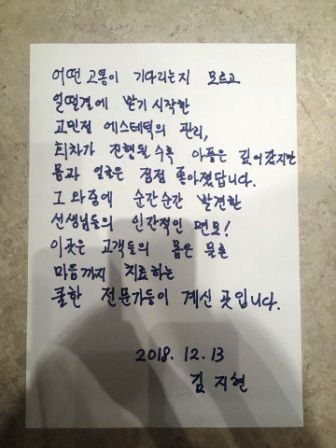 어떤 고통이 기다리는지 모르고
얼떨결에 받기 시작한
고민정 에스테틱의 관리,
회차가 진행될수록 아픔은 깊어갔지만
몸과 얼굴은 점점 좋아졌답니다.
그 와중에 순간순간 발견한
선생님들의 인간적인 면모!
이곳은 고객들의 몸은 물론
마음까지 치료하는
쿨한 전문가들이 계신 곳입니다.
2018. 12. 13
김 지현